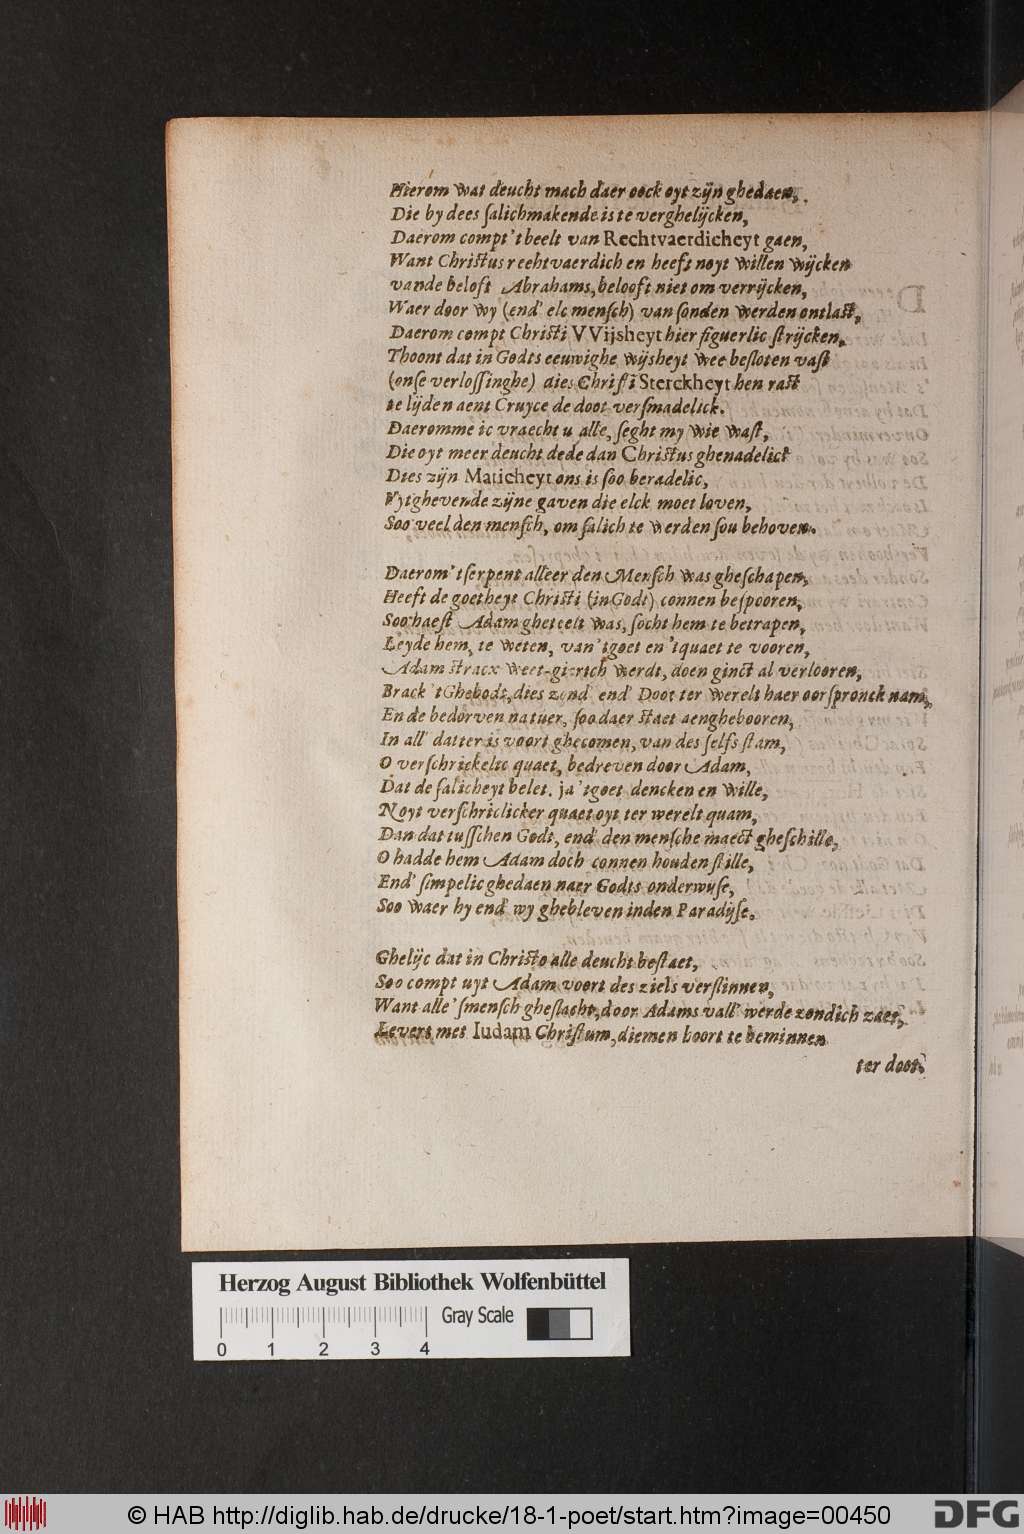 Hierom wat deucht mach daer oock oyt zijn ghedaen,
Die by dees ſalichmakende is te verghelijcken,
Daerom compt 't beelt van Rechtvaerdicheyt gaen,
Want Chriſtus reehtvaerdich en heeft noyt willen wijcken
vande beloft Abrahams, belooft niet om verrijcken,
Waer door wy (end' elc menſch) van ſonden werden ontlaſt,
Daerom compt Chriſti VVijsheyt hier figuerlic ſtrijcken,
Thoont dat in Godts eeuwighe wijsheyt wee beſloten vaſt
(onſe verloſſinghe) dies Chriſti Sterckheyt hen raſt
te lijden aent Cruyce de doot verſmadelick.
Daeromme ic vraecht u alle, ſeght my wie waſt,
Die oyt meer deucht dede dan Chriſtus ghenadelict
Dies zijn Maticheyt ons is ſoo beradelic,
Vytghevende zijne gaven die elck moet loven,
Soo veel den menſch, om ſalich te werden ſou behoven.
Daerom 't ſerpent alleer den Menſch was gheſchapen,
Heeft de goetheyt Chriſti (in Godt) connen beſpooren,
Soo haeſt Adam gheteelt was, ſocht hem te betrapen,
Leyde hem, te weten, van 'tgoet en 'tquaet te vooren,
Adam ſtracx weet-gierich werdt, doen ginct al verlooren,
Brack 't Ghebodt, dies zond' end' Doot ter werelt haer oorſpronck nam,
En de bedorven natuer, ſoo daer ſtaet aenghebooren,
In all' datter is voort ghecomen, van des ſelfs ſtam,
O verſchrickelic quaet, bedreven door Adam,
Dat de ſalicheyt belet. ja 'tgoet dencken en wille,
Noyt verſchriclicker quaet oyt ter werelt quam,
Dan dat tuſſchen Godt, end' den menſche maect gheſchille,
O hadde hem Adam doch connen houden ſtille,
End' ſimpelic ghedaen naer Godts onderwijſe,
Soo waer hy end' wy ghebleven inden Paradijſe.
Ghelijc dat in Chriſto alle deucht beſtaet,
Soo compt uyt Adam voort des ziels verſlinnen,
Want alle 'ſmenſch gheſlacht, door Adams vall' werde zondich zaet,
Levert met Iudam Chriſtum, diemen hoort te beminnen
ter doot,
Herzog August Bibliothek Wolfenbüttel
Gray Scale
0 1 2 3 4
© HAB http://diglib.hab.de/drucke/18-1-poet/start.htm?image=00450
DFG